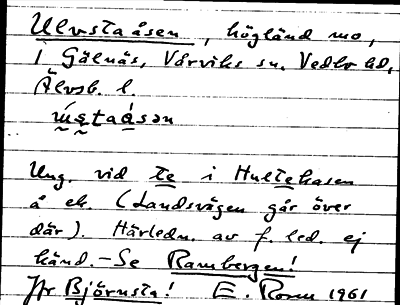 Ulvstaåsen, högländ mo,
i Gälnäs, Vårviks sn. Vedbo hd,
Älvsb. l.
Ung. vid te i Hultekasen
å ek. (Landsvägen går över
där). Härledn. av f. led. ej
känd. - Se Rambergen!
Jfr Björnsta! E. Rosen 1961